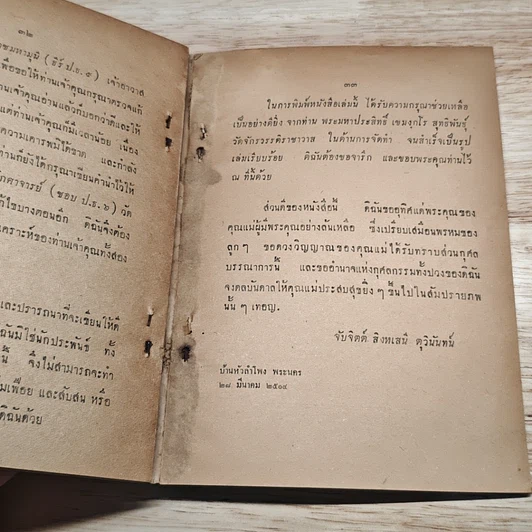 ๓๒
ชมหามุนี (ธีร์ ป.ธ. ๙) เจ้าอาวาส
เพื่อขอให้ท่านเจ้าคุณกรุณาตรวจแก้
านเจ้าคุณอ่านแล้วก็บอกว่าดีและให้
แต่ท่านเจ้าคุณก็มีเวลาน้อย เนื่อง
ความเคารพมิได้ขาด และกำลัง
ท่านก็ยังได้กรุณาเขียนคำนำไว้ให้
กตาจารย์ (ชอบ ป.ธ. ๖) วัด
ก้ไขบางตอนอีก ดิฉันจึงต้อง
เคราะห์ของท่านเจ้าคุณทั้งสอง
และปรารถนาที่จะเขียนให้ดี
ฉันมิใช่นักประพันธ์ ทั้ง
นี้ จึงไม่สามารถจะทำ
มเฟือย และสับสน หรือ
ดิฉันด้วย
๓๓
ในการพิมพ์หนังสือเล่มนี้ ได้รับความกรุณาช่วยเหลือ
เป็นอย่างดียิ่ง จากท่าน พระมหาประสิทธิ์ เขมงฺกุโร สุทธิพันธุ์
วัดจักรวรรดิราชาวาส ในด้านการจัดทำ จนสำเร็จเป็นรูป
เล่มเรียบร้อย ดิฉันต้องขอจารึก และขอบพระคุณท่านไว้
ณ ที่นี้ด้วย
ส่วนดีของหนังสือนี้ ดิฉันขออุทิศแด่พระคุณของ
คุณแม่ผู้มีพระคุณอย่างล้นเหลือ ซึ่งเปรียบเสมือนพรหมของ
ลูกๆ ขอดวงวิญญาณของคุณแม่ได้รับทราบส่วนกุศล
บรรณาการนี้ และขออำนาจแห่งกุศลกรรมทั้งปวงของดิฉัน
จงดลบันดาลให้คุณแม่ประสบสุขยิ่งๆ ขึ้นไปในสัมปรายภพ
นั้นๆ เทอญ.
จับจิตต์ สิงหเสนี ดุวินันทน์
บ้านหัวลำโพง พระนคร
๒๗ มีนาคม ๒๕๐๔